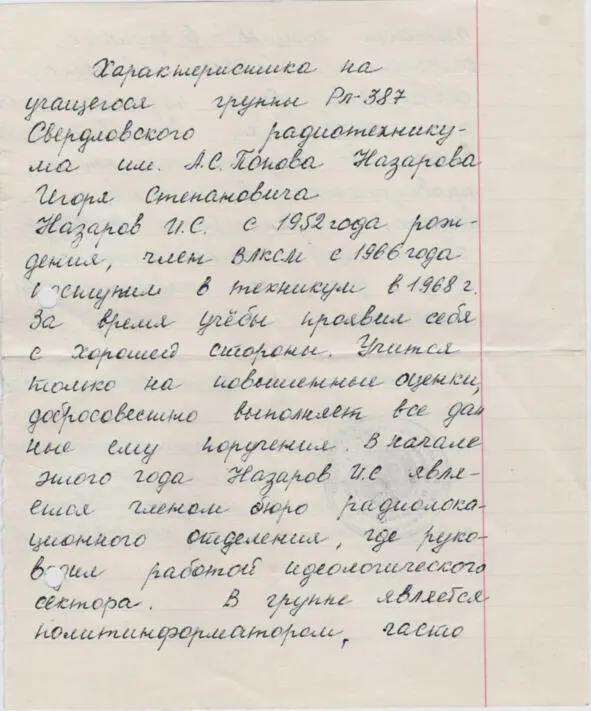 Характеристика на
учащегося группы Рл-387
Свердловского радиотехнику-
ма им. А.С. Попова Назарова
Игоря Степановича
Назаров И.С. с 1952 года рож-
дения, член ВЛКСМ с 1966 года
поступил в техникум в 1968 г.
За время учёбы проявил себя
с хорошей стороны. Учится
только на повышенные оценки,
добросовестно выполняет все дан
ные ему поручения. В начале
этого года Назаров И.С явля-
ется членом бюро радиолока-
ционного отделения, где руко-
водил работой идеологического
сектора. В группе является
политинформатором, часто